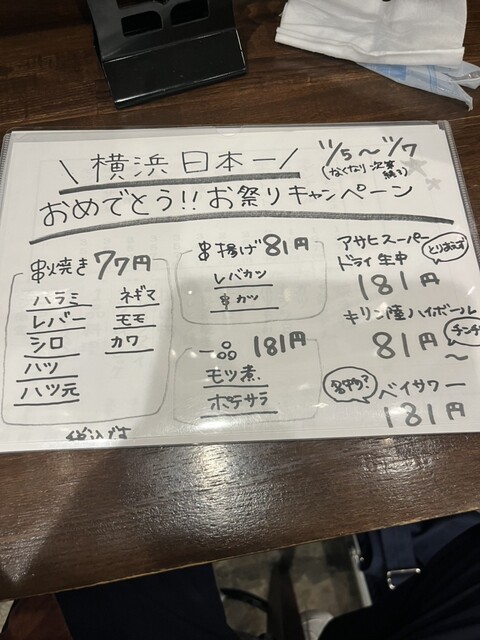 \ 横浜日本一 /
11/5～11/7
(なくなり次第終る)
おめでとう!! お祭りキャンペーン
串焼き 77円
ハラミ
レバー
シロ
ハツ
ハツ元
ネギマ
モモ
カワ
税込です
串揚げ 81円
レバカツ
串カツ
一品 181円
モツ煮
ポテサラ
アサヒスーパー
ドライ 生中
とりあえず
181円
キリン陸ハイボール
81円～
ベイサワー
181円